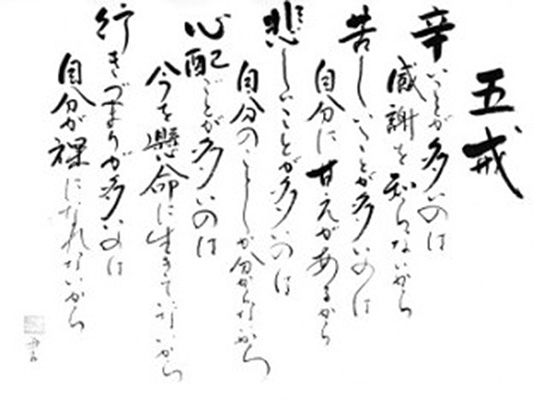 五戒
辛いことが多いのは
感謝を知らないから
苦しいことが多いのは
自分に甘えがあるから
悲しいことが多いのは
自分のことしか分からないから
心配ごとが多いのは
今を懸命に生きていないから
行きづまりが多いのは
自分が裸になれないから